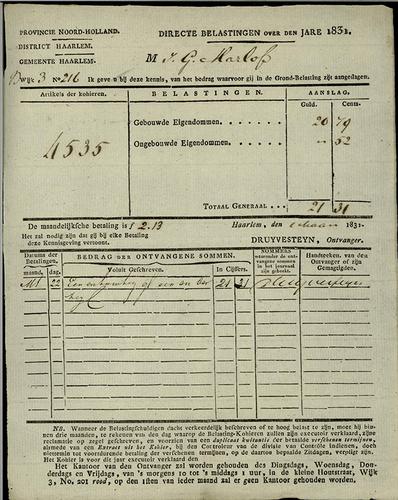 PROVINCIE NOORD-HOLLAND.
DISTRICT HAARLEM.
GEMEENTE HAARLEM.
DIRECTE BELASTINGEN OVER DEN JARE 1831.
M J. G. Marlof
Wijk 3 No. 216 Ik geve u bij deze kennis, van het bedrag waarvoor gij in de Grond-Belasting zijt aangedagen.
Artikels der kohieren.
BELASTINGEN.
AANSLAG.
Guld. Cents.
4535
Gebouwde Eigendommen 20 79
Ongebouwde Eigendommen " 52
TOTAAL GENERAAL 21 31
De maandelijksche betaling is f 2.13
Haarlem, den 1831.
Het zal noodig zijn dat gij bij elke Betaling
deze Kennisgeving vertoont.
DRUYVESTEYN, Ontvanger.
Datums der Betalingen.
maand, dag.
BEDRAG DER ONTVANGENE SOMMEN.
Voluit Geschreven.
In Cijffers.
NOMMERS
waaronder de ontvangene sommen in het journaal zijn geboekt.
Handteeken. van den Ontvanger of zijn Gemagtigden.
22 21 31
NB. Wanneer de Belastingschuldigen dacht verkeerdelijk beschreven of te hoog belast te zijn, moet hij binnen
drie maanden, te rekenen van den dag waarop de Belasting-Kohieren zullen zijn executoir verklaard, zijne
reclamatie op zegel geschreven, en voorzien van een duplicaat kwitantie der betaalde verschenen termijnen,
alsmede van een Extract uit het Kohier, bij den Controleur van de divisie van Contrôle indienen, doch
niettemin tot voordurende betaling der verschenen termijnen, op de daartoe bepaalde Zitdagen, verpligt zijn.
Het Kohier is voor dit jaar executoir verklaard den
Het Kantoor van den Ontvanger zal worden gehouden des Dingsdags, Woensdag, Donderdags
en Vrijdags, van 's morgens 10 tot 's middags 1 uur, in de kleine Houtstraat, Wijk
3, No. 201 rood, op den 1sten van ieder maand zal er geen Kantoor gehouden worden.